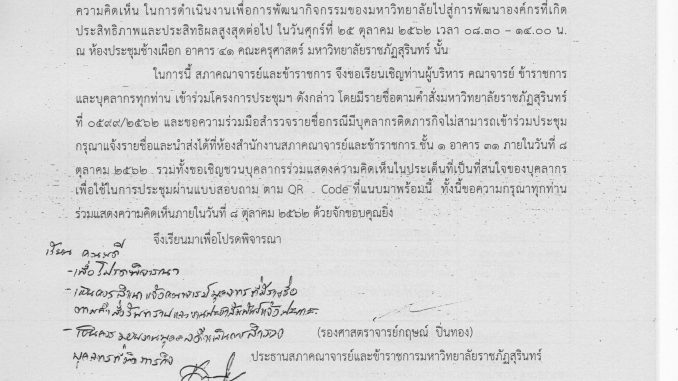 ความคิดเห็น ในการดำเนินงานเพื่อการพัฒนากิจกรรมของมหาวิทยาลัยไปสู่การพัฒนาองค์กรที่เกิด
ประสิทธิภาพและประสิทธิผลสูงสุดต่อไป ในวันศุกร์ที่ ๒๕ ตุลาคม ๒๕๖๒ เวลา ๐๘.๓๐ – ๑๔.๐๐ น.
ณ ห้องประชุมช้างเผือก อาคาร ๔๑ คณะครุศาสตร์ มหาวิทยาลัยราชภัฏสุรินทร์ นั้น
ในการนี้ สภาคณาจารย์และข้าราชการ จึงขอเรียนเชิญท่านผู้บริหาร คณาจารย์ ข้าราชการ
และบุคลากรทุกท่าน เข้าร่วมโครงการประชุมฯ ดังกล่าว โดยมีรายชื่อตามคำสั่งมหาวิทยาลัยราชภัฏสุรินทร์
ที่ ๐๕๙๙/๒๕๖๒ และขอความร่วมมือสำรวจรายชื่อกรณีมีบุคลากรติดภารกิจไม่สามารถเข้าร่วมประชุม
กรุณาแจ้งรายชื่อและนำส่งได้ที่ห้องสำนักงานสภาคณาจารย์และข้าราชการ ชั้น ๑ อาคาร ๓๑ ภายในวันที่ ๘
ตุลาคม ๒๕๖๒ รวมทั้งขอเชิญชวนบุคลากรร่วมแสดงความคิดเห็นในประเด็นที่เป็นที่สนใจของบุคลากร
เพื่อใช้ในการประชุมผ่านแบบสอบถาม ตาม QR . Code ที่แนบมาพร้อมนี้ ทั้งนี้ขอความกรุณาทุกท่าน
ร่วมแสดงความคิดเห็นภายในวันที่ ๘ ตุลาคม ๒๕๖๒ ด้วยจักขอบคุณยิ่ง
จึงเรียนมาเพื่อโปรดพิจารณา
เรียน คณบดี
- เพื่อโปรดพิจารณา
- เห็นควร
- เห็นควร
(รองศาสตราจารย์กฤษณ์ ปิ่นทอง)
บุคลากรที่ติดภารกิจ
ประธานสภาคณาจารย์และข้าราชการมหาวิทยาลัยราชภัฏสุรินทร์